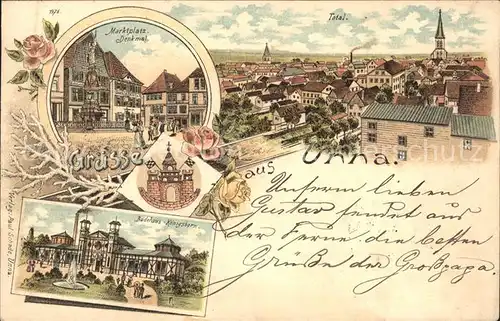 1976.
Marktplatz.
Denkmal.
Total.
Grüsse
aus
Unna.
Badehaus Königsborn.
Unserm lieben
Gustav sendet aus
der Ferne die besten
Grüße der Großpapa.